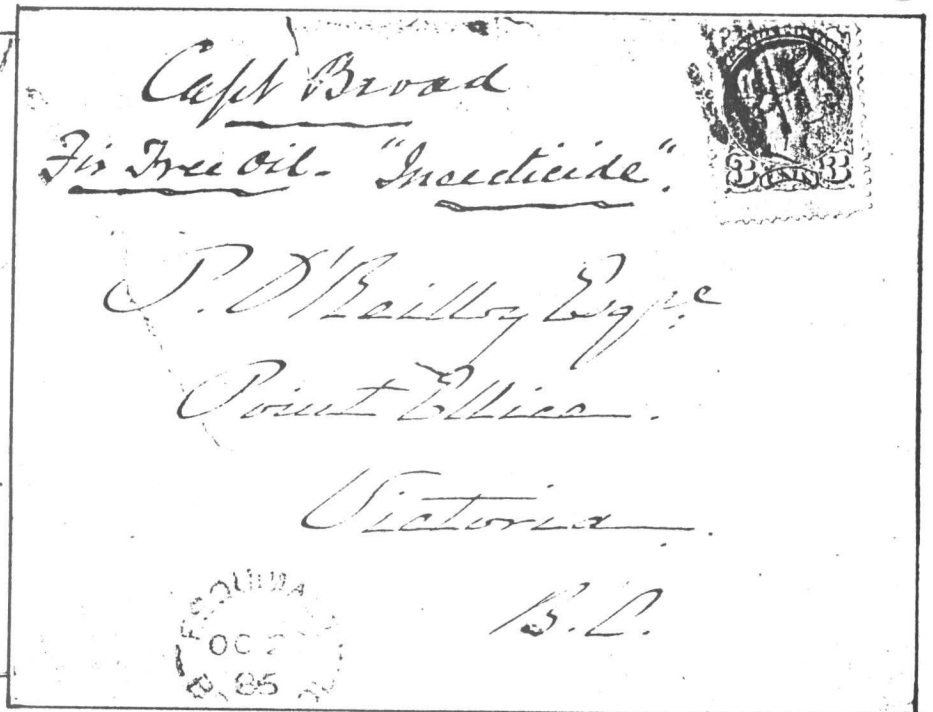 Capt Broad
Fir Tree Oil - "Insecticide".
P. O'Reilly Esqre
Point Ellice.
Victoria.
B.C.
3 CENTS 3
ESQUIMALT
OC 2
85
B.C.